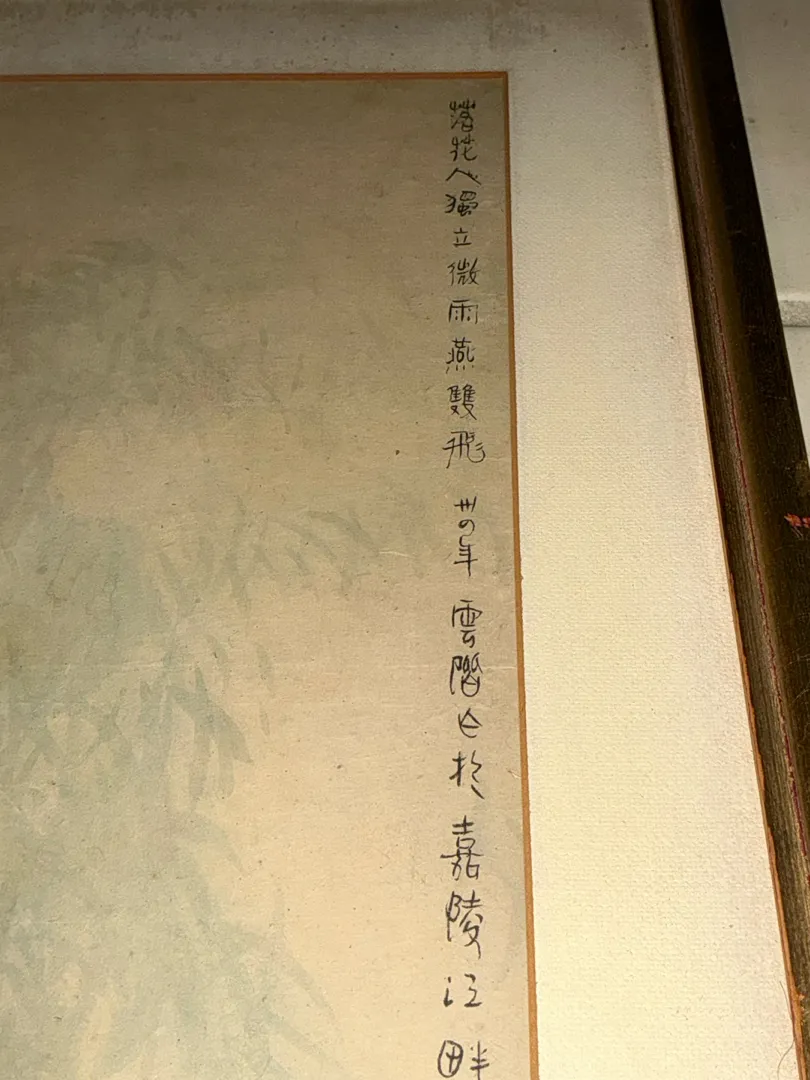 落花人獨立微雨燕雙飛 卅四年 雲階㠯於嘉陵江畔